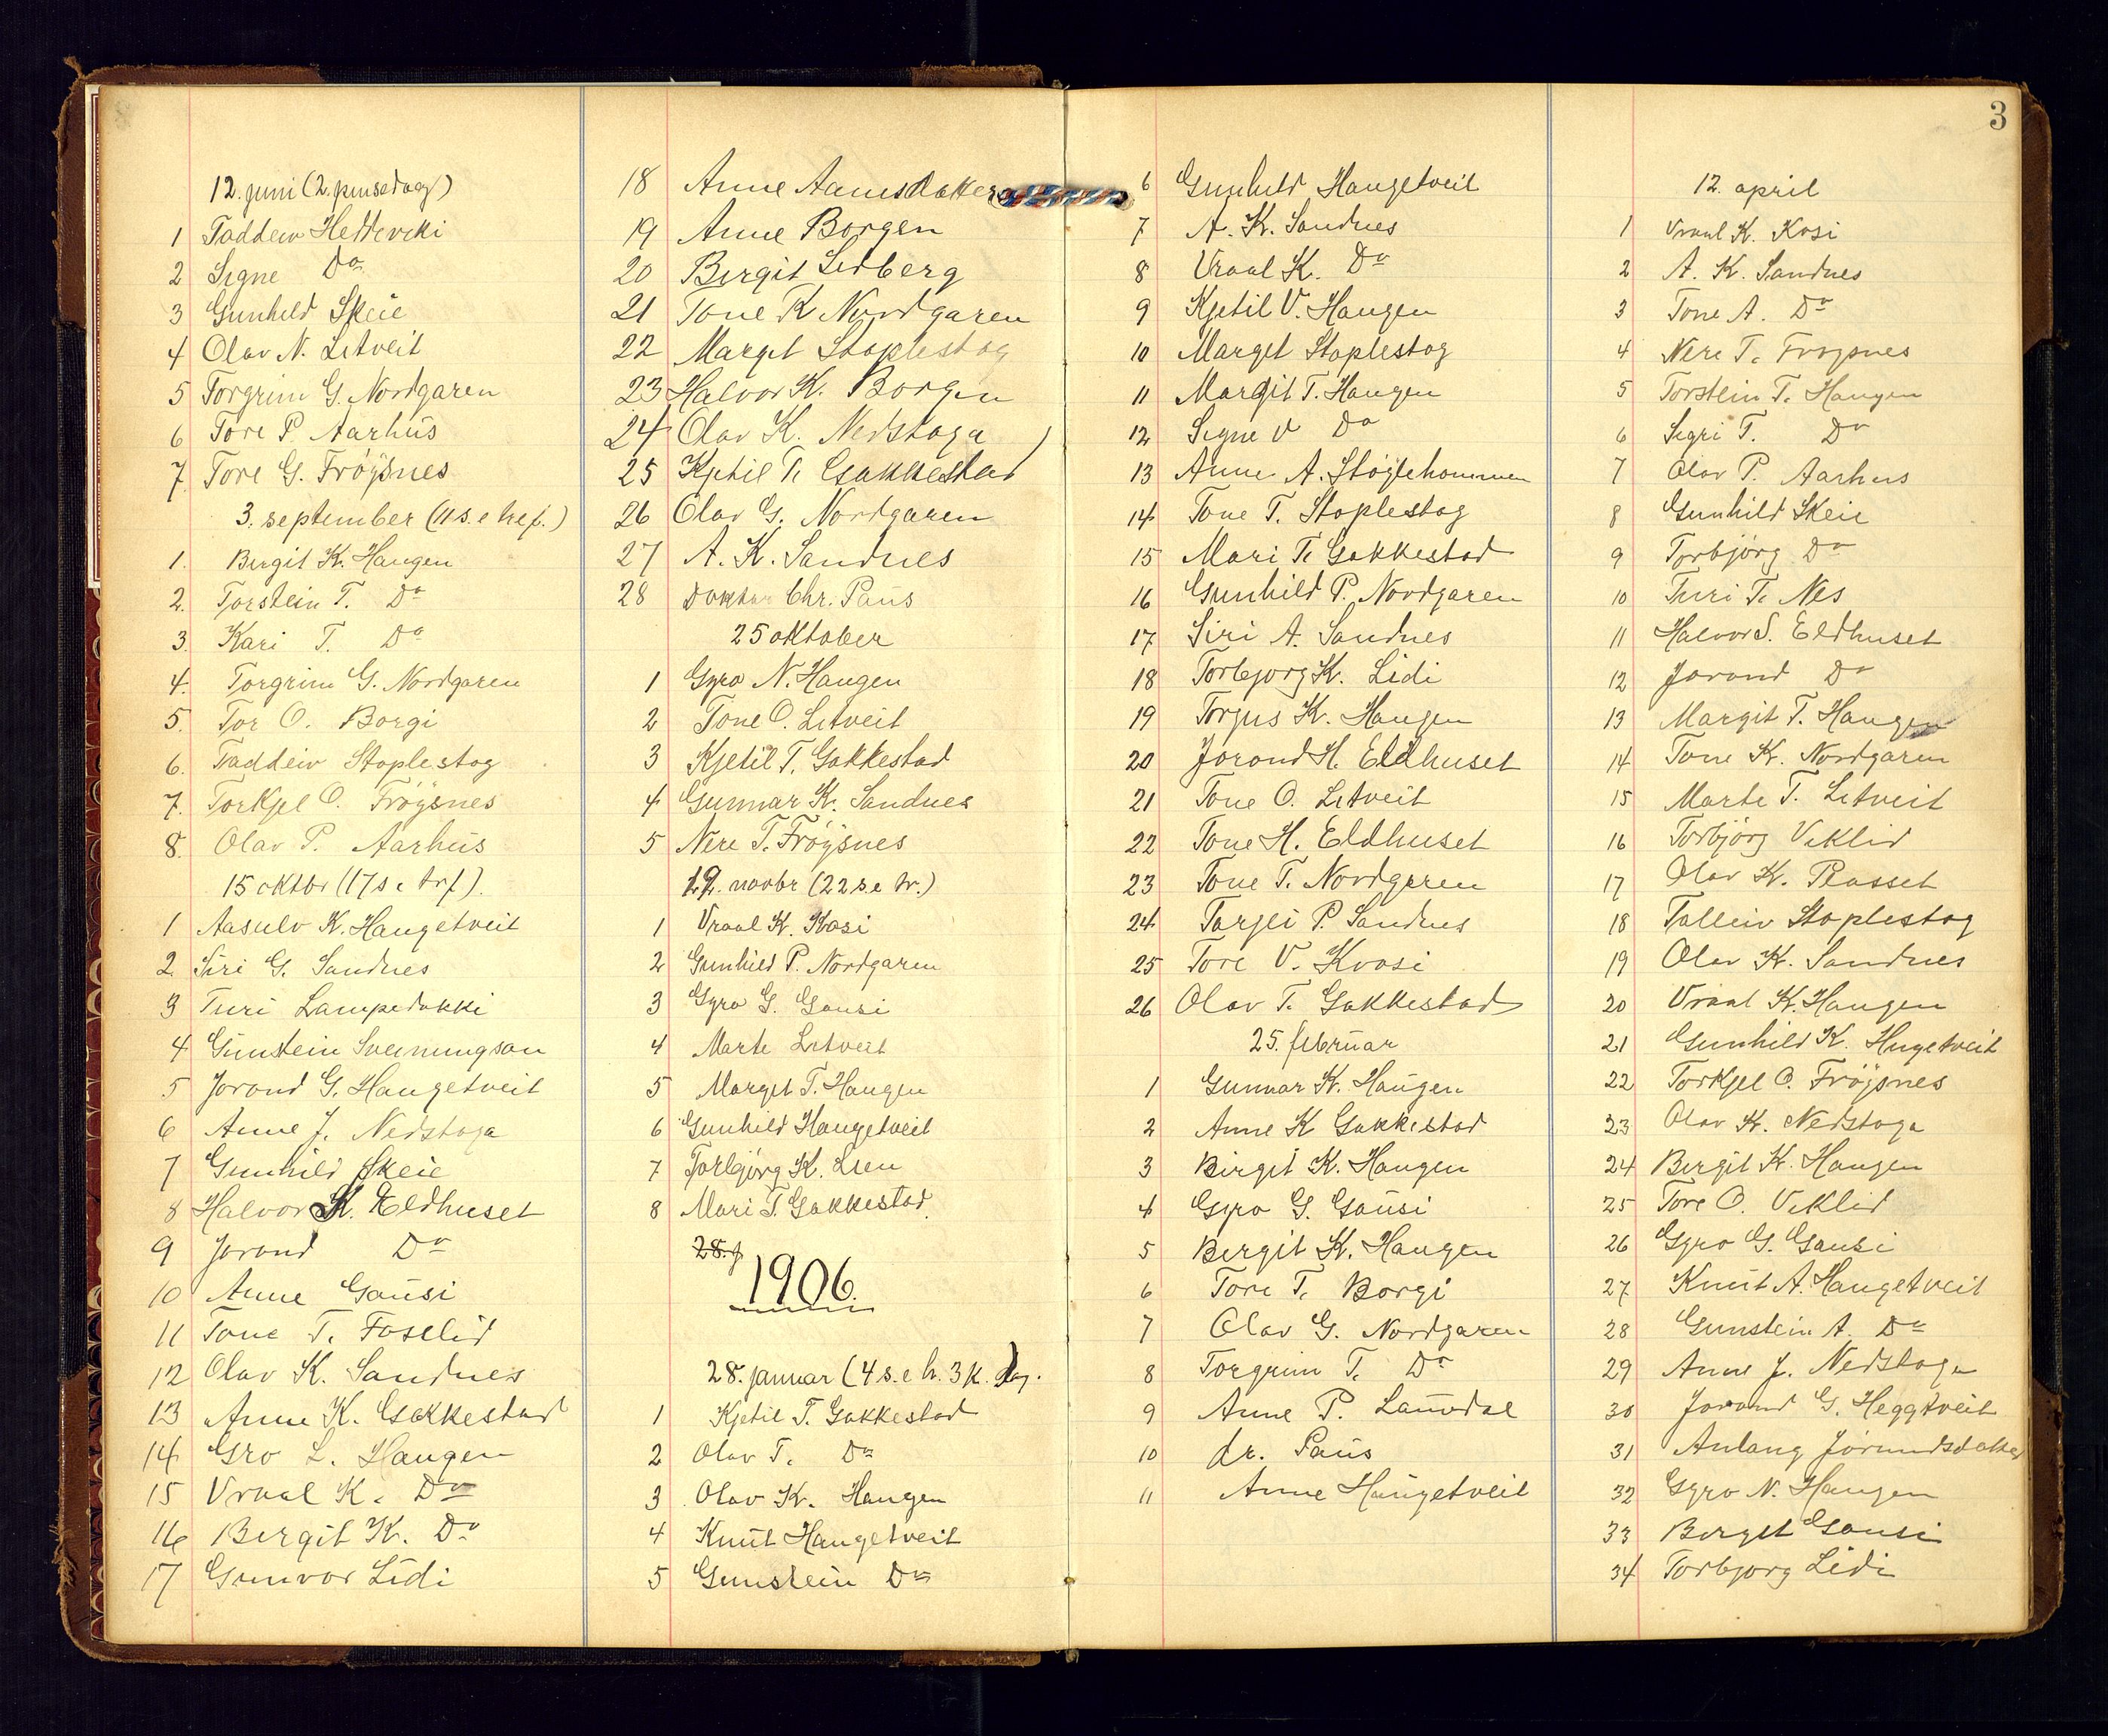 12. juni (2. pinsedag)
1 Taddeiv Heddeviki
2 Signe Do
3 Gunhild Skeie
4 Olav N. Litveit
5 Torgrim G. Nordgaren
6 Tore P. Aarhus
7 Tore G. Frøysnes
3. september (11 s. e tref.)
1. Birgit K. Haugen
2. Torstein T. Do
3. Kari T. Do
4. Torgrim G. Nordgaren
5. Tor O. Borgi
6. Taddeiv Stoplestog
7. Torkjel O. Frøysnes
8. Olav P. Aarhus
15 oktbr (17 s e trf).
1 Aasulv K. Haugetveit
2 Siri G. Sandnes
3 Turi Lampedokki
4 Gunstein Sveinungson
5 Jorond G. Haugetveit
6 Anne J. Nedstoga
7 Gunhild Skeie
8 Halvor K. Eldhuset
9 Jorond Do
10 Anne Gausi
11 Tone T. Foselid
12 Olav K. Sandnes
13 Anne K. Gakkestad
14 Gro L. Haugen
15 Vraal K. Do
16 Birgit K. Do
17 Gunvor Lidi
18 Anne Aamsdatter
19 Anne Borgen
20 Birgit Lidberg
21 Tone K Nordgaren
22 Margit Stoplestog
23 Halvor H. Borgen
24 Olav K. Nedstoga
25 Kjetil T. Gakkestad
26 Olav G. Nordgaren
27 A. K. Sandnes
28 Doktor Chr. Paus
25 oktober
1 Gyro N. Haugen
2 Tone O. Litveit
3 Kjetil T. Gakkestad
4 Gunnar K. Sandnes
5 Nere T. Frøysnes
19. novbr (22 s. e tr.)
1 Vraal K. Kosi
2 Gunhild P. Nordgaren
3 Gyro G. Gausi
4 Marte Litveit
5 Margit T. Haugen
6 Gunhild Haugetveit
7 Torbjørg K. Lien
8 Mari T. Gakkestad
28. j
1906.
28. januar (4 s. e h. 3 k. dag.
1 Kjetil T. Gakkestad
2 Olav T. Do
3 Olav K. Haugen
4 Knut Haugetveit
5 Gunstein Do
3
6 Gunhild Haugetveit
7 A. K. Sandnes
8 Vraal K. Do
9 Kjetil V. Haugen
10 Margit Stoplestog
11 Margit T. Haugen
12 Signe V Do
13 Anne A. Støylehommen
14 Tone T. Stoplestog
15 Mari T. Gakkestad
16 Gunhild P. Nordgaren
17 Siri A. Sandnes
18 Torbjorg K. Lidi
19 Torjus K. Haugen
20 Jorond H. Eldhuset
21 Tone O. Litveit
22 Tone H. Eldhuset
23 Tone T. Nordgaren
24 Targei P. Sandnes
25 Tore V. Kvosi
26 Olav T. Gakkestad
25. februar
1 Gunnar K. Haugen
2 Anne K Gakkestad
3 Birgit K. Haugen
4 Gyro G. Gausi
5 Birgit K. Haugen
6 Tore T. Borgi
7 Olav G. Nordgaren
8 Torgrim T. Do
9 Anne P. Lauvdal
10 dr. Paus
11 Anne Haugetveit
12. april
1 Vraal K. Kosi
2 A. K. Sandnes
3 Tone A. Do
4 Nere T. Frøysnes
5 Torstein T. Haugen
6 Sigri T. Do
7 Olav P. Aarhus
8 Gunhild Skeie
9 Torbjørg Do
10 Turi T. Nes
11 Halvor S. Eldhuset
12 Jorond Do
13 Margit T. Haugen
14 Tone K. Nordgaren
15 Marte T. Litveit
16 Torbjörg Viklid
17 Olav K. Plasset
18 Talleiv Stoplestog
19 Olav K. Sandnes
20 Vraal K. Haugen
21 Gunhild K. Hugetveit
22 Torkjel O. Frøysnes
23 Olav K. Nedstoga
24 Birgit K. Haugen
25 Tore O. Viklid
26 Gyro G. Gausi
27 Knut A. Haugetveit
28 Gunstein A. Do
29 Anne J. Nedstoga
30 Jorond G. Heggtveit
31 Anlaug Jørundsdatter
32 Gyro N. Haugen
33 Birgit Gausi
34 Torbjorg Lidi